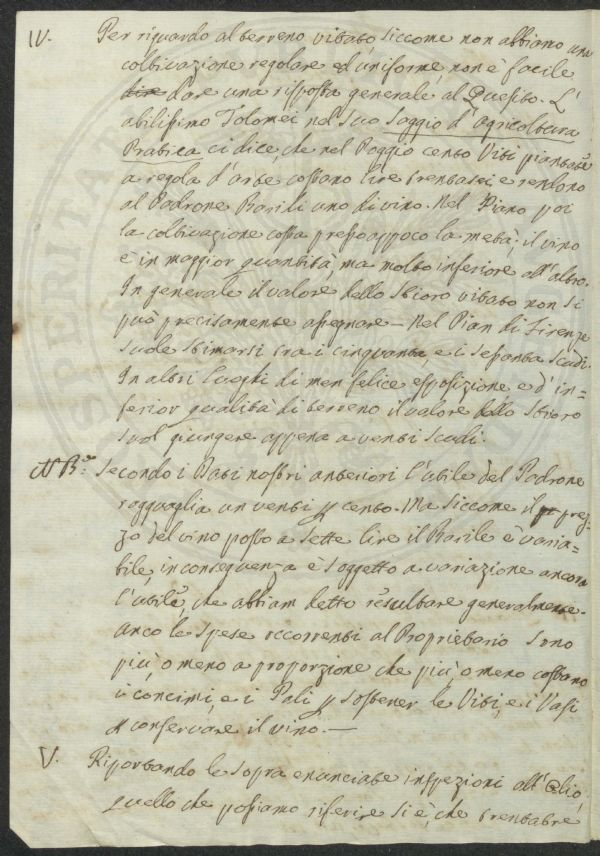 IV. Per riguardo al terreno vitato, siccome non abbiamo una
coltivazione regolare ed uniforme, non è facile
dare una risposta generale al Quesito. L'
abilissimo Tolomei nel suo Saggio d'agricoltura
Pratica ci dice, che nel Poggio cento Viti piantate
a regola d'arte costano lire trentasei e rendono
al Padrone Barili uno di vino. Nel Piano poi
la coltivazione costa presso appoco la metà; il vino
è in maggior quantità, ma molto inferiore all'altro.
In generale il valore dello Stioro vitato non si
può precisamente assegnare — Nel Pian di Firenze
suole stimarsi tra i cinquanta e i sessanta scudi.
In altri luoghi di men felice esposizione e d'in=
ferior qualità di terreno il valore dello Stioro
suol giungere appena a venti scudi.
N B. Secondo i Dati nostri anteriori l'utile del Padrone
ragguaglia un venti p cento. Ma siccome il prez=
zo del vino posto a sette lire il Barile è varia=
bile, in conseguenza è soggetto a variazione ancora
l'utile, che abbiam detto resultare generalmente.
Anco le spese occorrenti al Proprietario sono
più, o meno a proporzione che più, o meno costano
i concimi, e i Pali p sostener le Viti, e i Vasi
p conservare il vino. —
V. Riportando le sopra enunciate inspezioni all'Olio,
quello che possiamo riferire si è, che trentatre